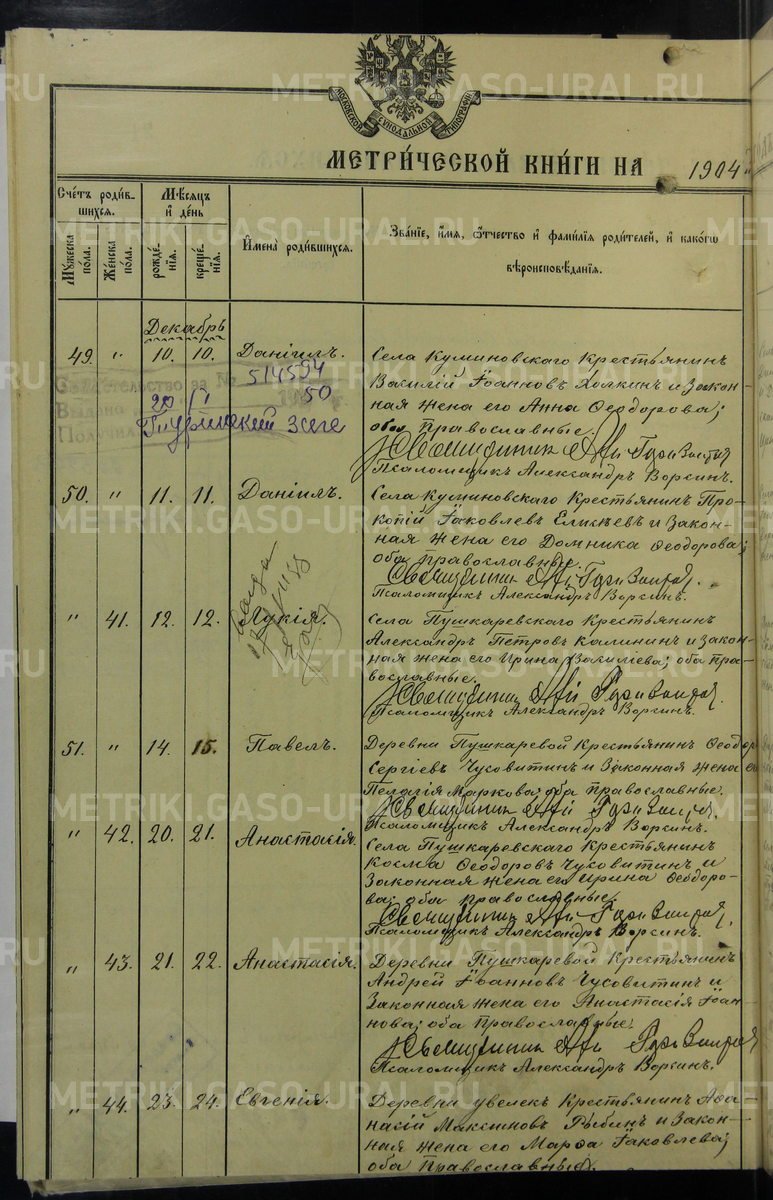 МОСКОВСКОЙ СѴНОДАЛЬНОЙ ТИПОГРАФІИ
МЕТРИ́ЧЕСКОЙ КНИ́ГИ НА 1904
Сче́тъ роди́вшихся.
Му́жеска по́ла.
Же́нска по́ла.
Мѣ́сяцъ и҆ де́нь
рожде́нїя.
креще́нїя.
И҆мена̀ роди́вшихся.
Зва́нїе, и҆́мя, ѻ҆́тчество и҆ фами́лїя роди́телей, и҆ како́гѡ
вѣроисповѣ́данїя.
Декабрь
49. " 10. 10. Данiилъ.
Села Куминовскаго Крестьянинъ
Василiй Iоанновъ Холкинъ и Закон-
ная жена его Анна Ѳеодорова;
оба Православные.
Священникъ
Псаломщикъ Александръ Ворсинъ.
Свидетельство за №
514594
50
Выдано
Получил
Туринский Загс
50. " 11. 11. Данiилъ.
Села Куминовскаго Крестьянинъ Про-
копiй Iаковлевъ Еликѣевъ и Закон-
ная жена его Домника Ѳеодорова;
оба Православные.
Священникъ
Псаломщикъ Александръ Ворсинъ.
" 41. 12. 12. Лукiя.
Села Пушкаревскаго Крестьянинъ
Александръ Петровъ Калининъ и закон-
ная жена его Ирина Василiева; оба пра-
вославные.
Священникъ
Псаломщикъ Александръ Ворсинъ.
51. " 14. 15. Павелъ.
Деревни Пушкаревой Крестьянинъ Ѳеодор
Сергiевъ Чусовитинъ и Законная жена ег
Пелагiя Маркова; оба православные.
Священникъ
Псаломщикъ Александръ Ворсинъ.
" 42. 20. 21. Анастасiя.
Села Пушкаревскаго Крестьянинъ
Косма Ѳеодоровъ Чусовитинъ и
Законная жена его Ирина Ѳеодоро-
ва; оба православные.
Священникъ
Псаломщикъ Александръ Ворсинъ.
" 43. 21. 22. Анастасiя.
Деревни Пушкаревой Крестьянинъ
Андрей Iоанновъ Чусовитинъ и
Законная жена его Анастасiя Iоан-
нова; оба православные.
Священникъ
Псаломщикъ Александръ Ворсинъ.
" 44. 23. 24. Евгенiя.
Деревни Увелекъ Крестьянинъ Аѳа-
насiй Максимовъ Рыбинъ и Закон-
ная жена его Марѳа Iаковлева;
оба Православные.
METRIKI.GASO-URAL.RU